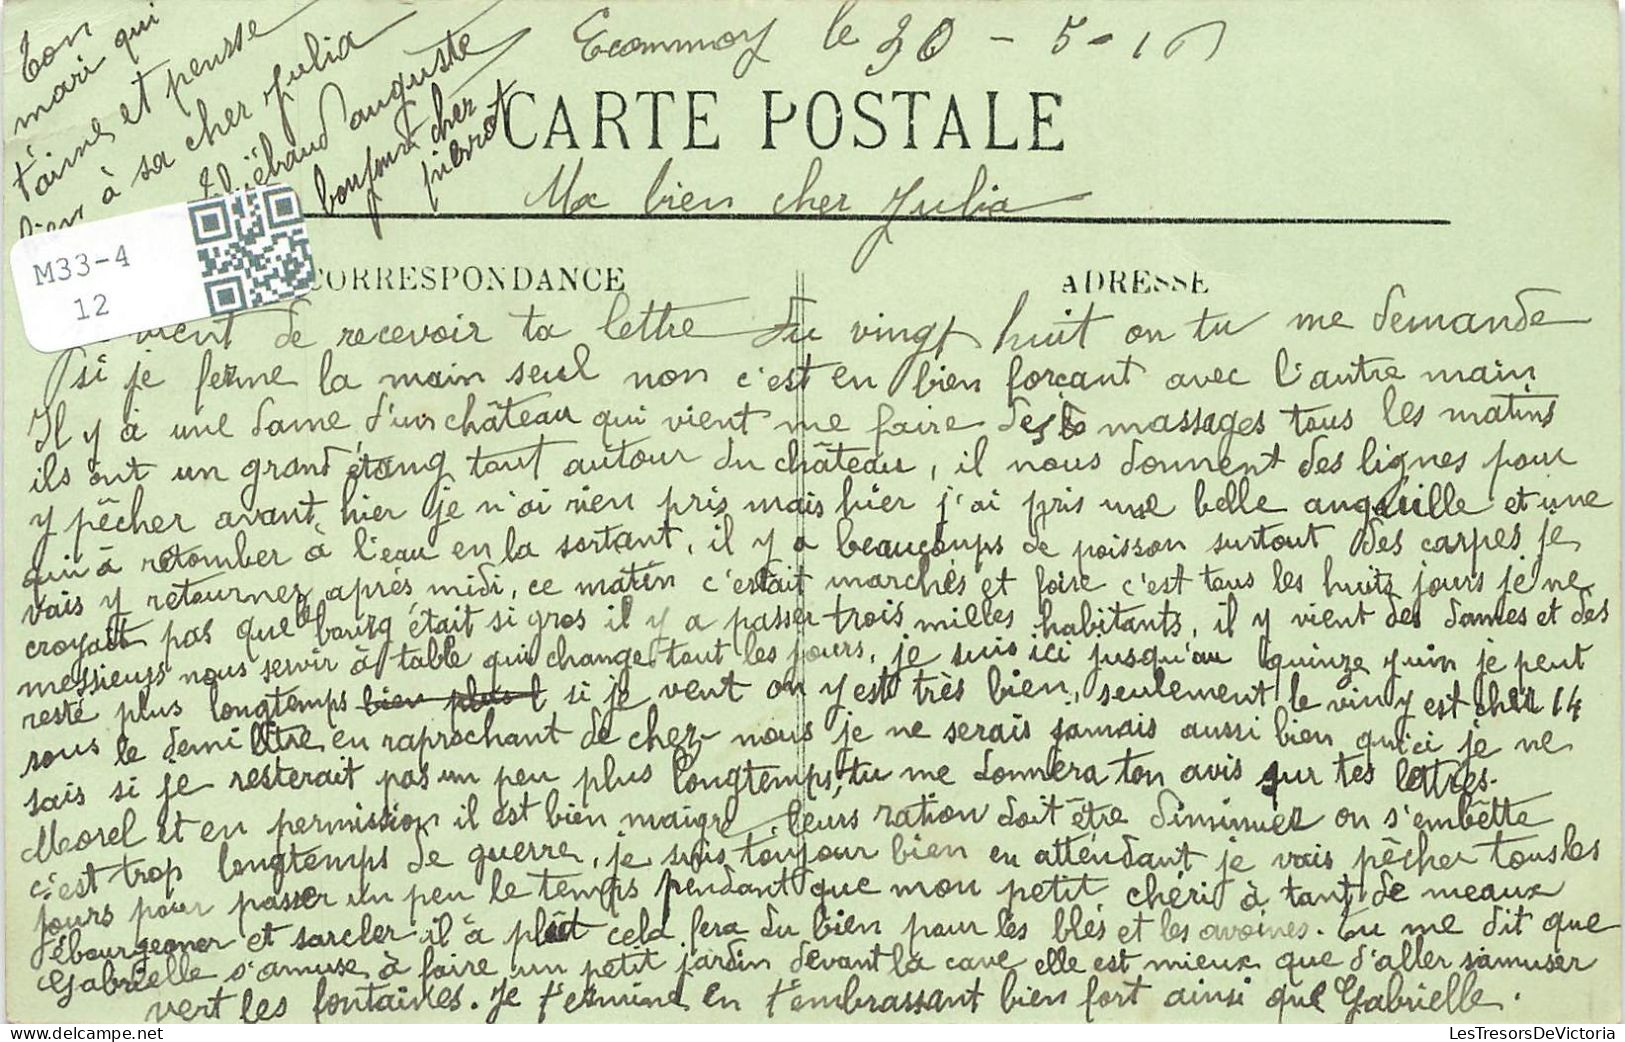 Ecommoy le 30 - 5 - 16
CARTE POSTALE
Ma bien cher Julia
CORRESPONDANCE
ADRESSE
vient de recevoir ta lettre du vingt huit on tu me demande
si je ferme la main seul non c'est en bien forçant avec l'autre main
Il y a une dame d'un château qui vient me faire des massages tous les matins
ils ont un grand étang tout autour du château, il nous donnent des lignes pour
y pêcher avant hier je n'ai rien pris mais hier j'ai pris une belle anguille et une
qui à retomber à l'eau en la sortant, il y a beaucoups de poisson surtout des carpes je
vais y retournez après midi, ce matin c'estait marchés et foire c'est tous les huits jours je ne
croyait pas que le bourg était si gros il y a passer trois milles habitants, il y vient des dames et des
messieurs nous servir à table qui change tout les jours, je suis ici jusqu'au quinze juin je peut
resté plus longtemps bien plus l si je veut on y est très bien, seulement le vin y est cher 14
sous le demi litre en raprochant de chez nous je ne serais jamais aussi bien qu'ici je ne
sais si je resterait pas un peu plus longtemps, tu me donnera ton avis sur tes lettres.
Morel et en permission il est bien maigre leurs ration doit être diminuez on s'embêtte
c'est trop longtemps de guerre, je suis toujour bien en attendant je vais pêcher tous les
jours pour passer un peu le temps pendant que mon petit chéri à tant de meaux
ébourgeoner et sarcler il à plut cela fera du bien pour les blés et les avoines. Tu me dit que
Gabrielle s'amuse à faire un petit jardin devant la cave elle est mieux que d'aller s'amuser
vert les fontaines. Je termine en t'embrassant bien fort ainsi que Gabrielle.
Ton
mari qui
t'aime et pensse
bien à sa cher Julia
Thiébaud auguste
bonjour cher
pierrot
M33-4
12
LesTresorsDeVictoria